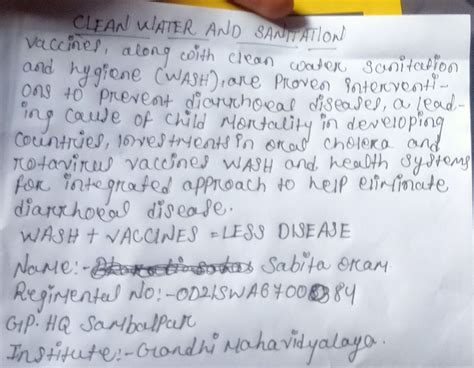 CLEAN WATER AND SANITATION
Vaccines, along with clean water sanitation
and hygiene (WASH), are proven interventi-
ons to prevent diarrhoeal diseases, a lead-
ing cause of child Mortality in developing
countries, Investments in oral cholera and
rotavirus vaccines WASH and health systems
for integrated approach to help eliminate
diarrhoeal disease.
WASH + VACCINES = LESS DISEASE
Name:- Sabita Oram
Regimental No:- OD21SWA6700884
GP. HQ Sambalpur
Institute:- Gandhi Mahavidyalaya.